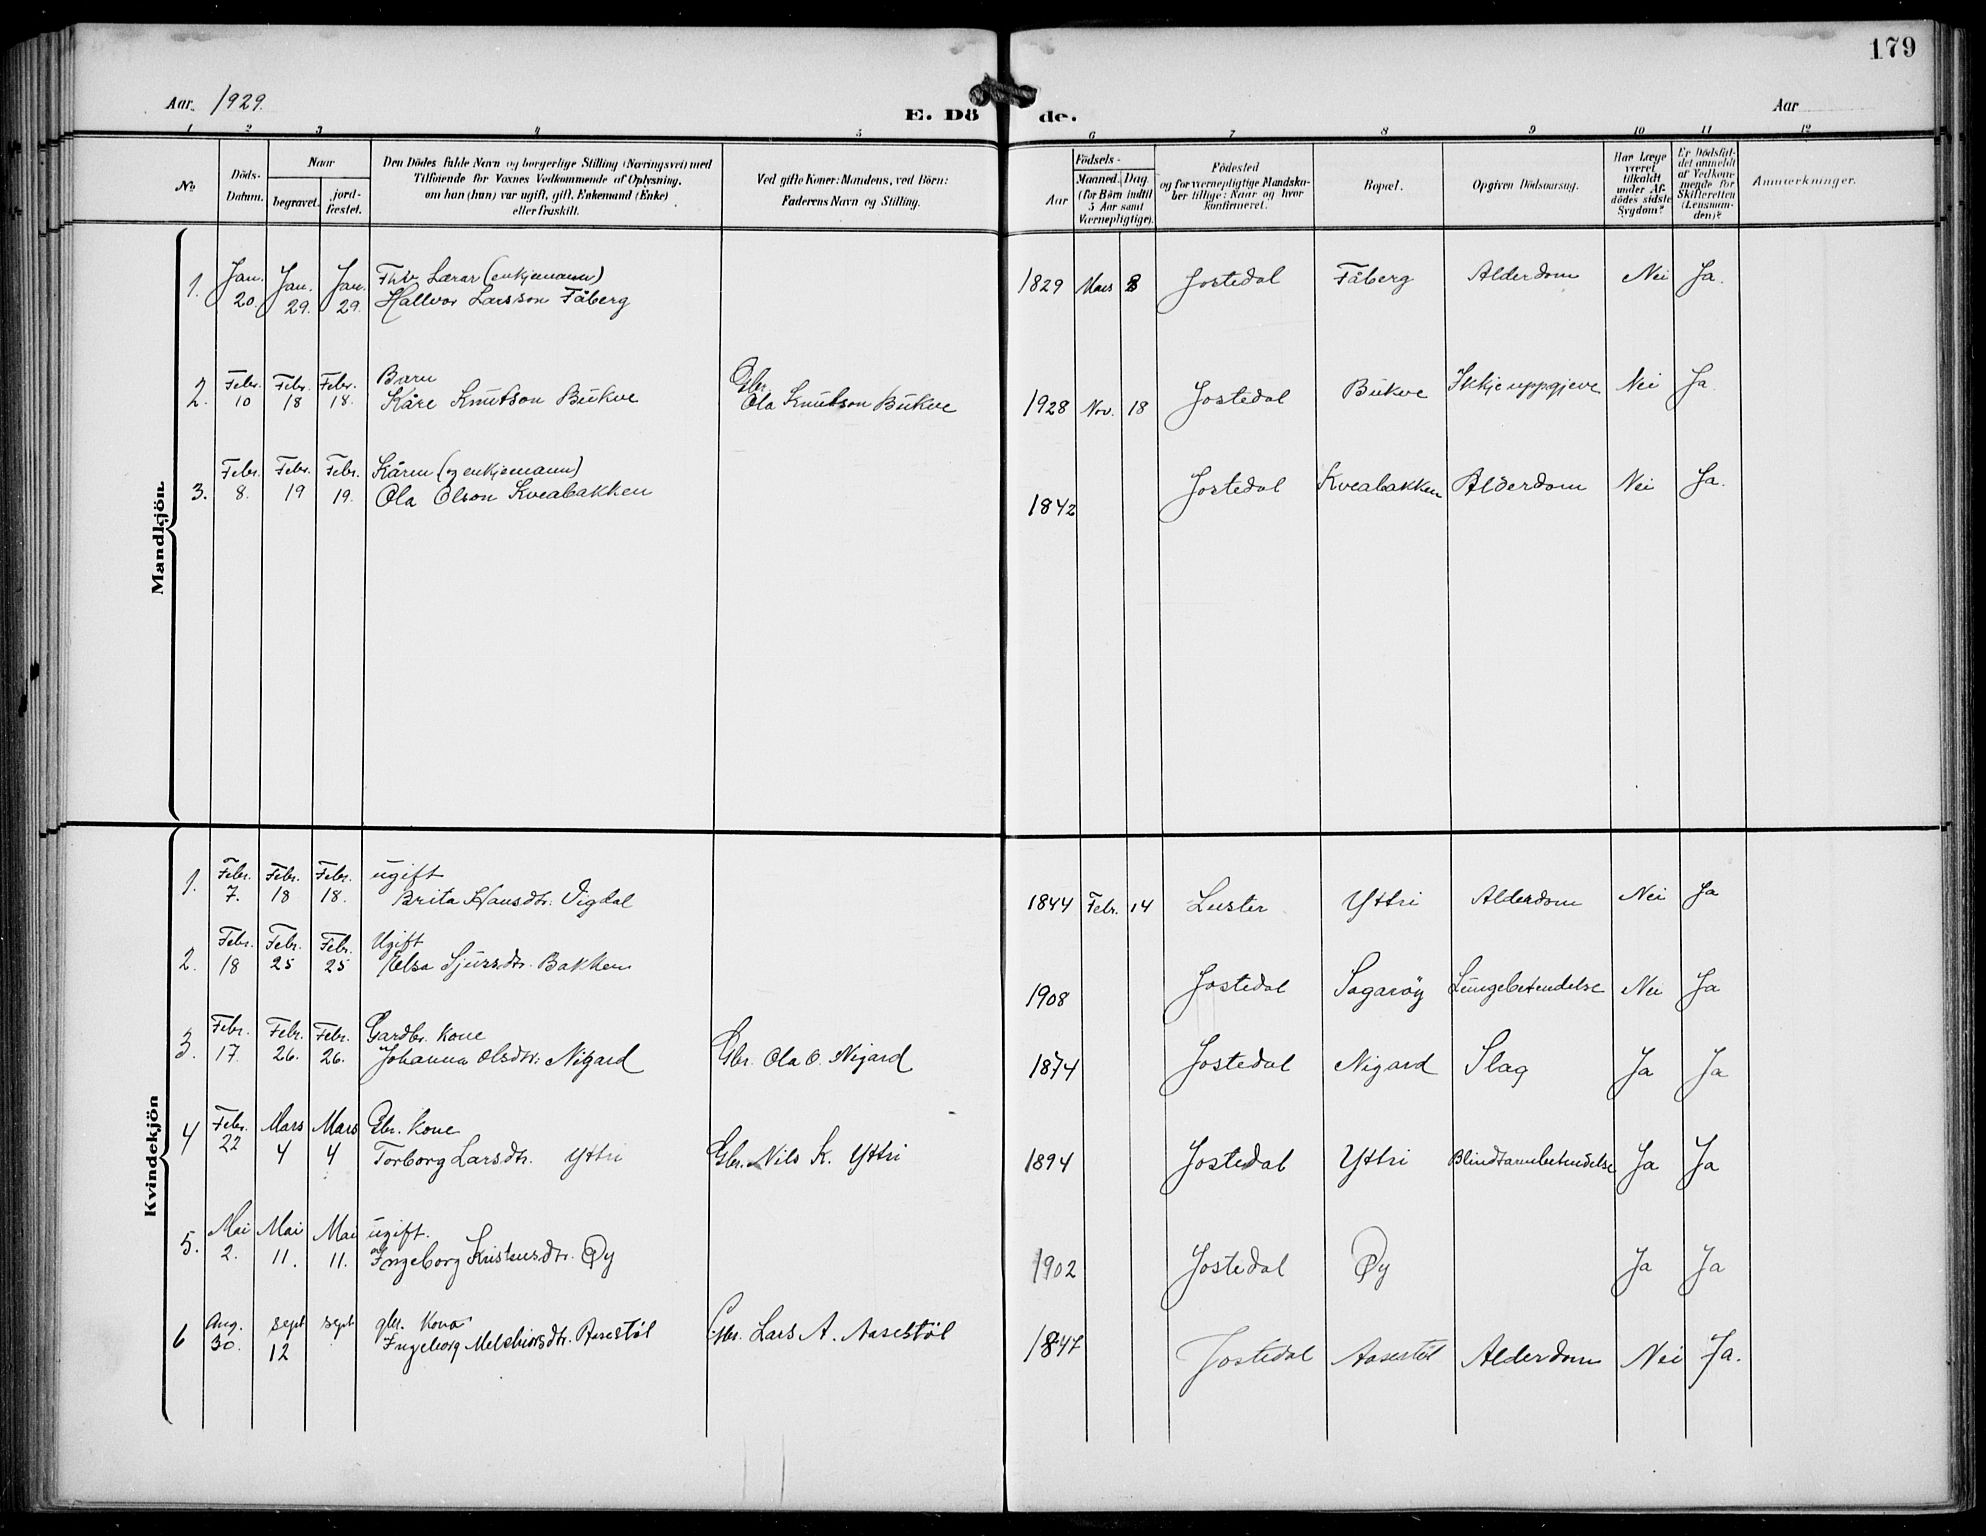 179
Aar 1929.
E. Dö de.
Aar
1 2 3 4 5 6 7 8 9 10 11 12
No
Döds-Datum.
Naar
begravet.
jord-fæstet.
Den Dödes fulde Navn og borgerlige Stilling (Næringsvei) med
Tilföiende for Voxnes Vedkommende af Oplysning,
om han (hun) var ugift, gift, Enkemand (Enke)
eller fraskilt.
Ved gifte Koner: Mandens, ved Börn:
Faderens Navn og Stilling.
Födsels-
Aar
Maaned. Dag
(for Börn indtil
5 Aar samt
Værnepligtige).
Födested
og for værnepligtige Mandska-
ber tillige: Naar og hvor
konfirmeret.
Bopæl.
Opgiven Dödsaarsag.
Har Læge
været
tilkaldt
under Af-
dödes sidste
Sygdom?
Er Dödsfal-
det anmeldt
af Vedkom-
mende for
Skifteretten
(Lensman-
den)?
Anmærkninger.
Mandkjön.
1. Jan. 20. Jan. 29. Jan. 29. Lærar (enkjemann)
Hallvor Larsson Fåberg 1829 Mars 8 Jostedal Fåberg Alderdom Nei Ja.
2. Febr. 10 Febr. 18 Febr. 18. Barn
Kåre Knutson Bukve Gbr. Ola Knutson Bukve 1928 Nov. 18 Jostedal Bukve Ikkje uppgjeve Nei Ja.
3. Febr. 8. Febr. 19 Febr. 19. Kårm (og enkjemann)
Ola Olson Kveabakken 1842 Jostedal Kveabakken Alderdom Nei Ja.
Kvindekjön
1. Febr. 7. Febr. 18 Febr. 18. ugift
Brita Hansdtr. Vigdal 1844 Febr. 14 Luster Yttri Alderdom Nei Ja
2. Febr. 18 Febr. 25 Febr. 25 Ugift
Elsa Sjursdtr. Bakken 1908 Jostedal Sagarøy Lungebetendelse Nei Ja
3. Febr. 17. Febr. 26. Febr. 26. Gardbr. kone
Johanna Olsdtr. Nigard Gbr. Ola O. Nigard 1874 Jostedal Nigard Slag Ja Ja
4 Febr. 22 Mars 4 Mars 4 Gbr. kone
Torborg Larsdtr. Yttri Gbr. Nils K. Yttri 1894 Jostedal Yttri Blindtarmbetendelse Ja Ja
5. Mai 2. Mai 11. Mai 11. ugift.
Ingeborg Kristensdtr. Øy 1902 Jostedal Øy Ja Ja
6 Aug. 30. sept 12 sept gbr. kona
Ingeborg Melchiorsdtr. Aasestøl Gbr. Lars A. Aasestøl 1847 Jostedal Aasestøl Alderdom Nei Ja.